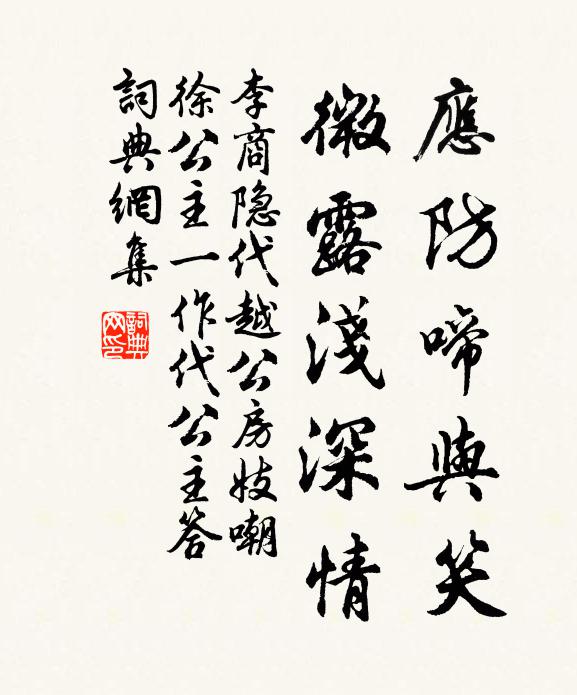 應防啼與笑
微露淺深情
李商隐代越公房妓嘲
徐公主一作代公主答
詞典網集
詞典网印